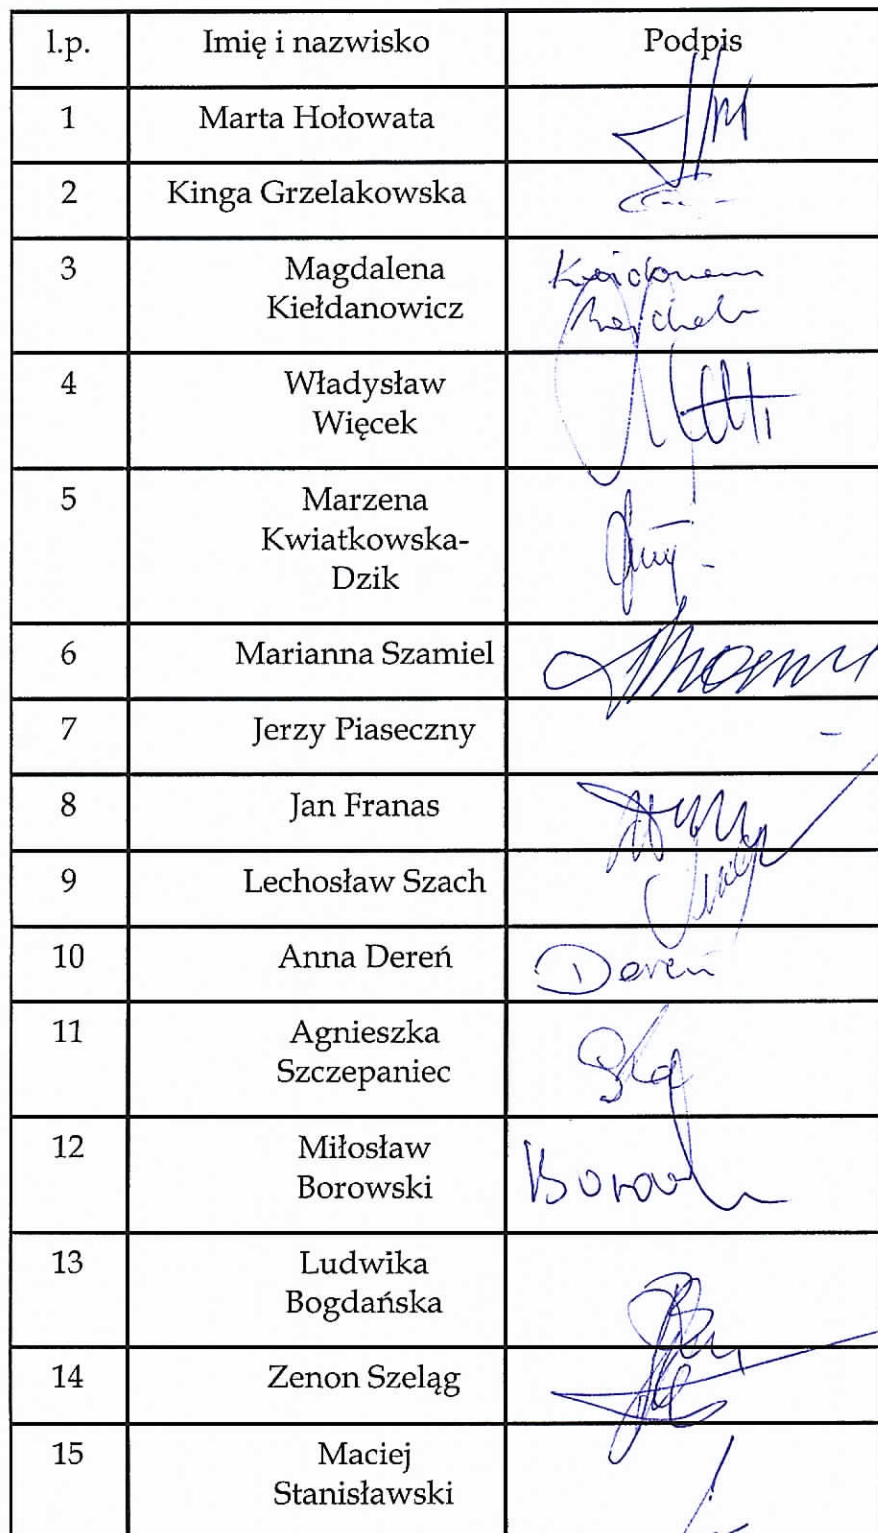 l.p. Imię i nazwisko Podpis
1 Marta Hołowata
2 Kinga Grzelakowska
3 Magdalena
Kiełdanowicz
4 Władysław
Więcek
5 Marzena
Kwiatkowska-
Dzik
6 Marianna Szamiel
7 Jerzy Piaseczny -
8 Jan Franas
9 Lechosław Szach
10 Anna Dereń Dereń
11 Agnieszka
Szczepaniec
12 Miłosław
Borowski
13 Ludwika
Bogdańska
14 Zenon Szeląg
15 Maciej
Stanisławski